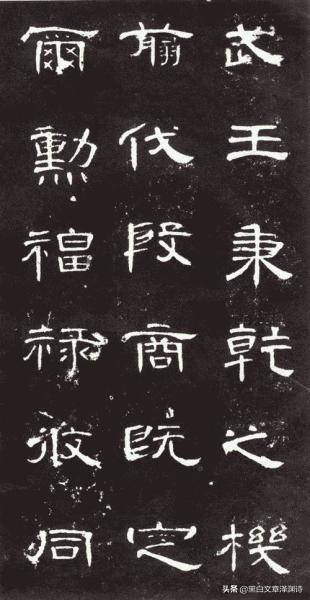 武王秉乾之機
翦伐殷商既定
爾勳福祿攸同
头条 @黑白文章泽渊诗